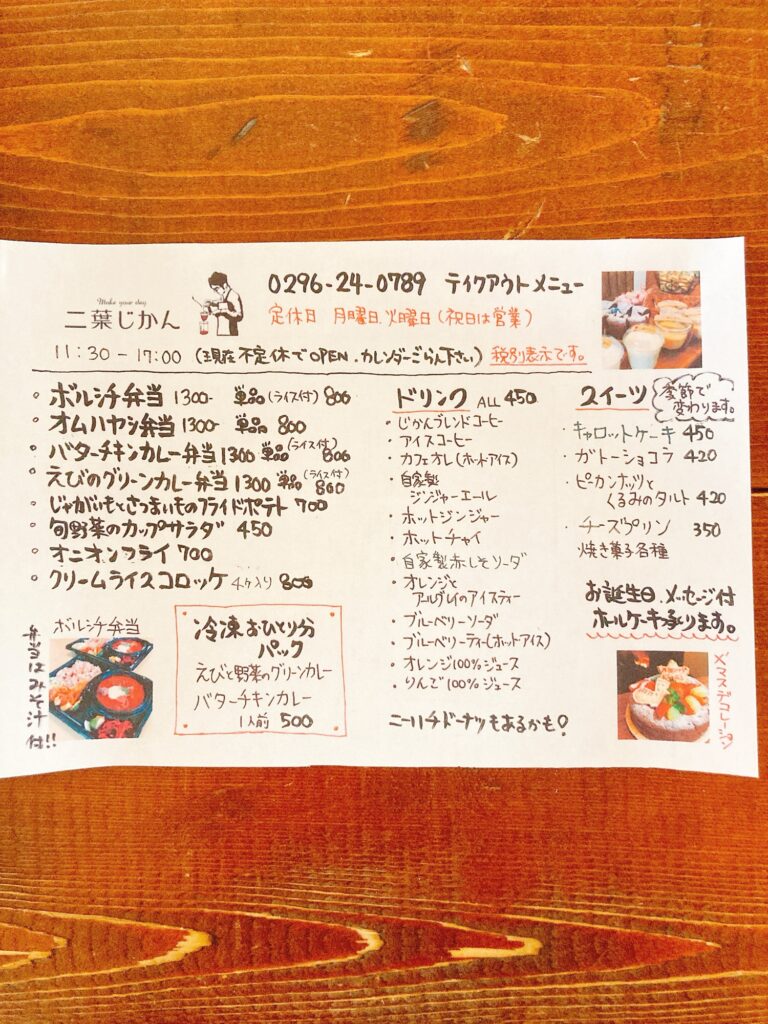 Make your day
二葉じかん
0296-24-0789 テイクアウトメニュー
定休日 月曜日.火曜日(祝日は営業)
11:30-17:00(現在不定休でOPEN.カレンダーごらん下さい)税別表示です。
ボルシチ弁当 1300- 単品(ライス付)800
オムハヤシ弁当 1300- 単品 800
バターチキンカレー弁当 1300 単品(ライス付)800
えびのグリーンカレー弁当 1300 単品(ライス付)800
じゃがいもとさつまいものフライドポテト 700
旬野菜のカップサラダ 450
オニオンフライ 700
クリームライスコロッケ 4ヶ入り 800
ボルシチ弁当
弁当はみそ汁付!!
冷凍おひとり分
パック
えびと野菜のグリーンカレー
バターチキンカレー
1人前 500
ドリンク ALL 450
・じかんブレンドコーヒー
・アイスコーヒー
・カフェオレ(ホットアイス)
・自家製
ジンジャーエール
・ホットジンジャー
・ホットチャイ
・自家製赤しそソーダ
・オレンジと
アールグレイのアイスティー
・ブルーベリーソーダ
・ブルーベリーティー(ホットアイス)
・オレンジ100%ジュース
・りんご100%ジュース
ニーハチドーナツもあるかも?
スイーツ
季節で
変わります。
・キャロットケーキ 450
・ガトーショコラ 420
・ピーカンナッツと
くるみのタルト 420
・チーズプリン 350
焼き菓子各種
お誕生日.メッセージ付
ホールケーキ承ります。
X'マスデコレーション